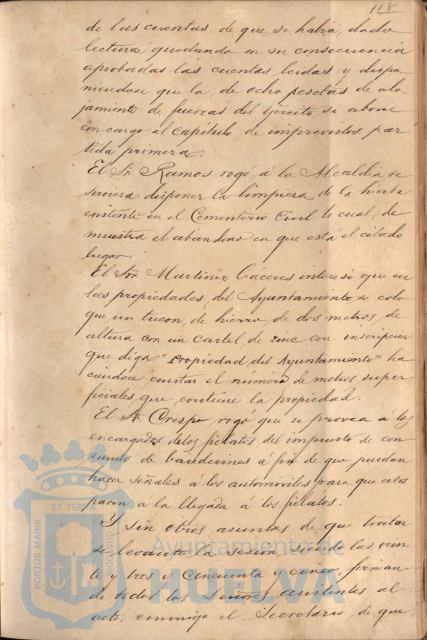 118
de las cuentas de que se había dado
lectura quedando en su consecuencia
aprobadas las cuentas leidas y dispo
niendose que la de ocho pesetas de alo
jamiento de fuerzas del ejército se abone
con cargo al Capítulo de imprevistos par
tida primera.
El Sr. Ramos rogó á la Alcaldía se
sirviera disponer la limpieza de la hierba
existente en el Cementerio Civil lo cual, de
muestra el abandono en que está el citado
lugar.
El Sr. Martinez Cáceres interesó que en
las propiedades del Ayuntamiento se colo
que un de hierro de dos metros de
altura con un cartel de zinc con inscripcion
que diga "Propiedad del Ayuntamiento" ha
ciendose constar el número de metros super
ficiales que contiene la propiedad.
El Sr. Crespo rogó que se provea a los
encargados de los fielatos del impuesto de con
sumos de banderines á fin de que puedan
hacer señales á los automóviles para que estos
paren á la llegada á los fielatos.
Y sin otros asuntos de que tratar
se levantó la sesion siendo las vein
te y tres y cincuenta y cinco, firman
do todos los Señores asistentes al
acto, conmigo el Secretario de que
PORTUS MARIS
ET TERRE
CUSTODIA
Ayuntamiento de
HUELVA